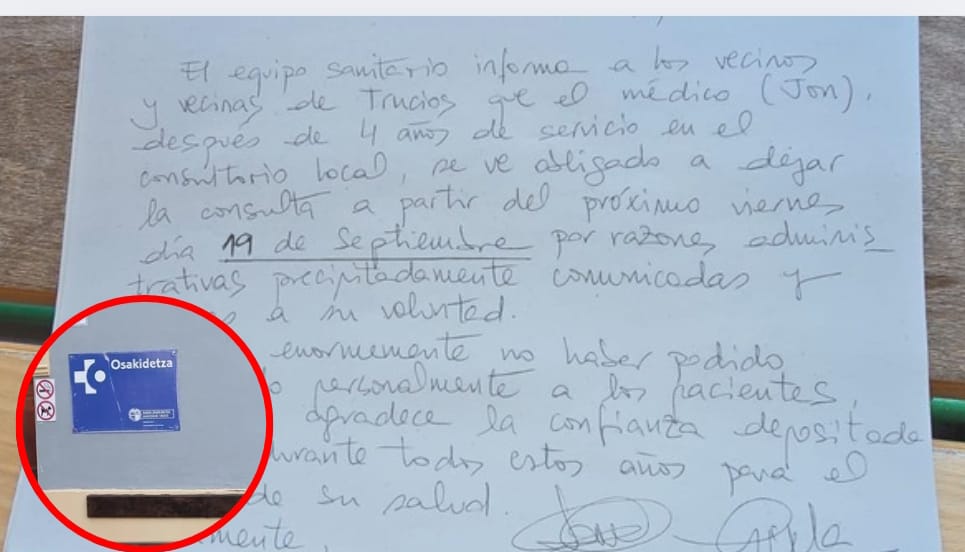 El equipo sanitario informa a los vecinos
y vecinas de Trucios que el médico (Jon),
después de 4 años de servicio en el
consultorio local, se ve obligado a dejar
la consulta a partir del próximo viernes
día 19 de Septiembre por razones adminis
trativas precipitadamente comunicadas y
a su voluntad.
enormemente no haber podido
personalmente a los pacientes,
agradece la confianza depositada
durante todos estos años para el
de su salud.
mente,
Osakidetza